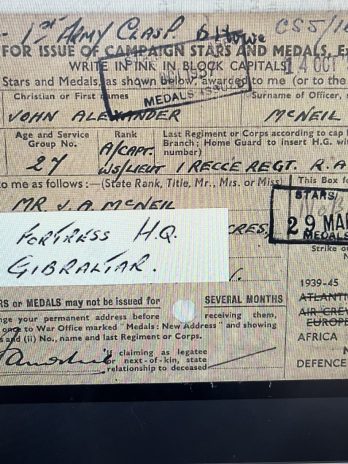 - 1st ARMY CLASP 6 Howe CS5/18
FOR ISSUE OF CAMPAIGN STARS AND MEDALS, E
WRITE IN INK IN BLOCK CAPITALS
14 OCT
Stars and Medals, as shown below, awarded to me (or to the
MEDALS ISSUED
Christian or First names Surname of Officer,
JOHN ALEXANDER McNEIL
Age and Service Group No. Rank Last Regiment or Corps according to cap
Branch; Home Guard to insert H.G. wi
number)
27 A/CAPT.
WS/LIEUT 1 RECCE REGT. R.A
to me as follows:—(State Rank, Title, Mr., Mrs. or Miss) This Box fo
MR J. A. McNEIL
STARS
29 MAR
MEDALS
FORTRESS H.Q.
GIBRALTAR.
CRES,
Strike o
N
1939-45
RS or MEDALS may not be issued for SEVERAL MONTHS
ATLANTI
AIR CREW
EUROPE
nge your permanent address before receiving them,
ong to War Office marked "Medals: New Address" and showing
s and (ii) No., name and last Regiment or Corps.
AFRICA
N
DEFENCE
If claiming as legatee
or next-of-kin, state
relationship to deceased